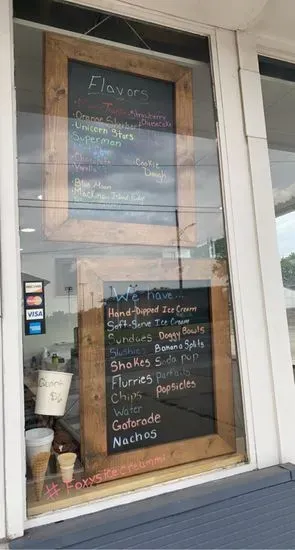 Flavors
Strawberry
Cheesecake
Orange Sherbert
Unicorn Stars
Superman
Cookie
Dough
Vanilla
Blue Moon
Mackinac Island Fudge
We have...
Hand-Dipped Ice Cream
Soft-Serve Ice Cream
Sundaes Doggy Bowls
Slushies Banana Splits
Shakes Soda pop
Flurries Parfaits
Chips Popsicles
Water
Gatorade
Nachos
VISA
Quart
$6
#Foxysicecreammi